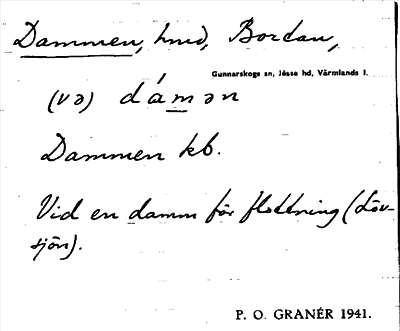 Dammen, hmd, Bordan,
Gunnarskogs sn, Jösse hd, Värmlands l.
(və) dámən
Dammen kb.
Vid en damm för flottning (Löv-
sjön).
P. O. GRANÉR 1941.